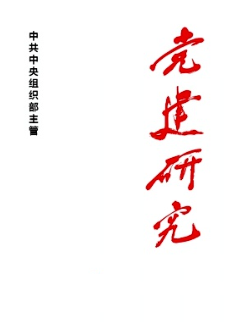 党建研究
中共中央组织部主管